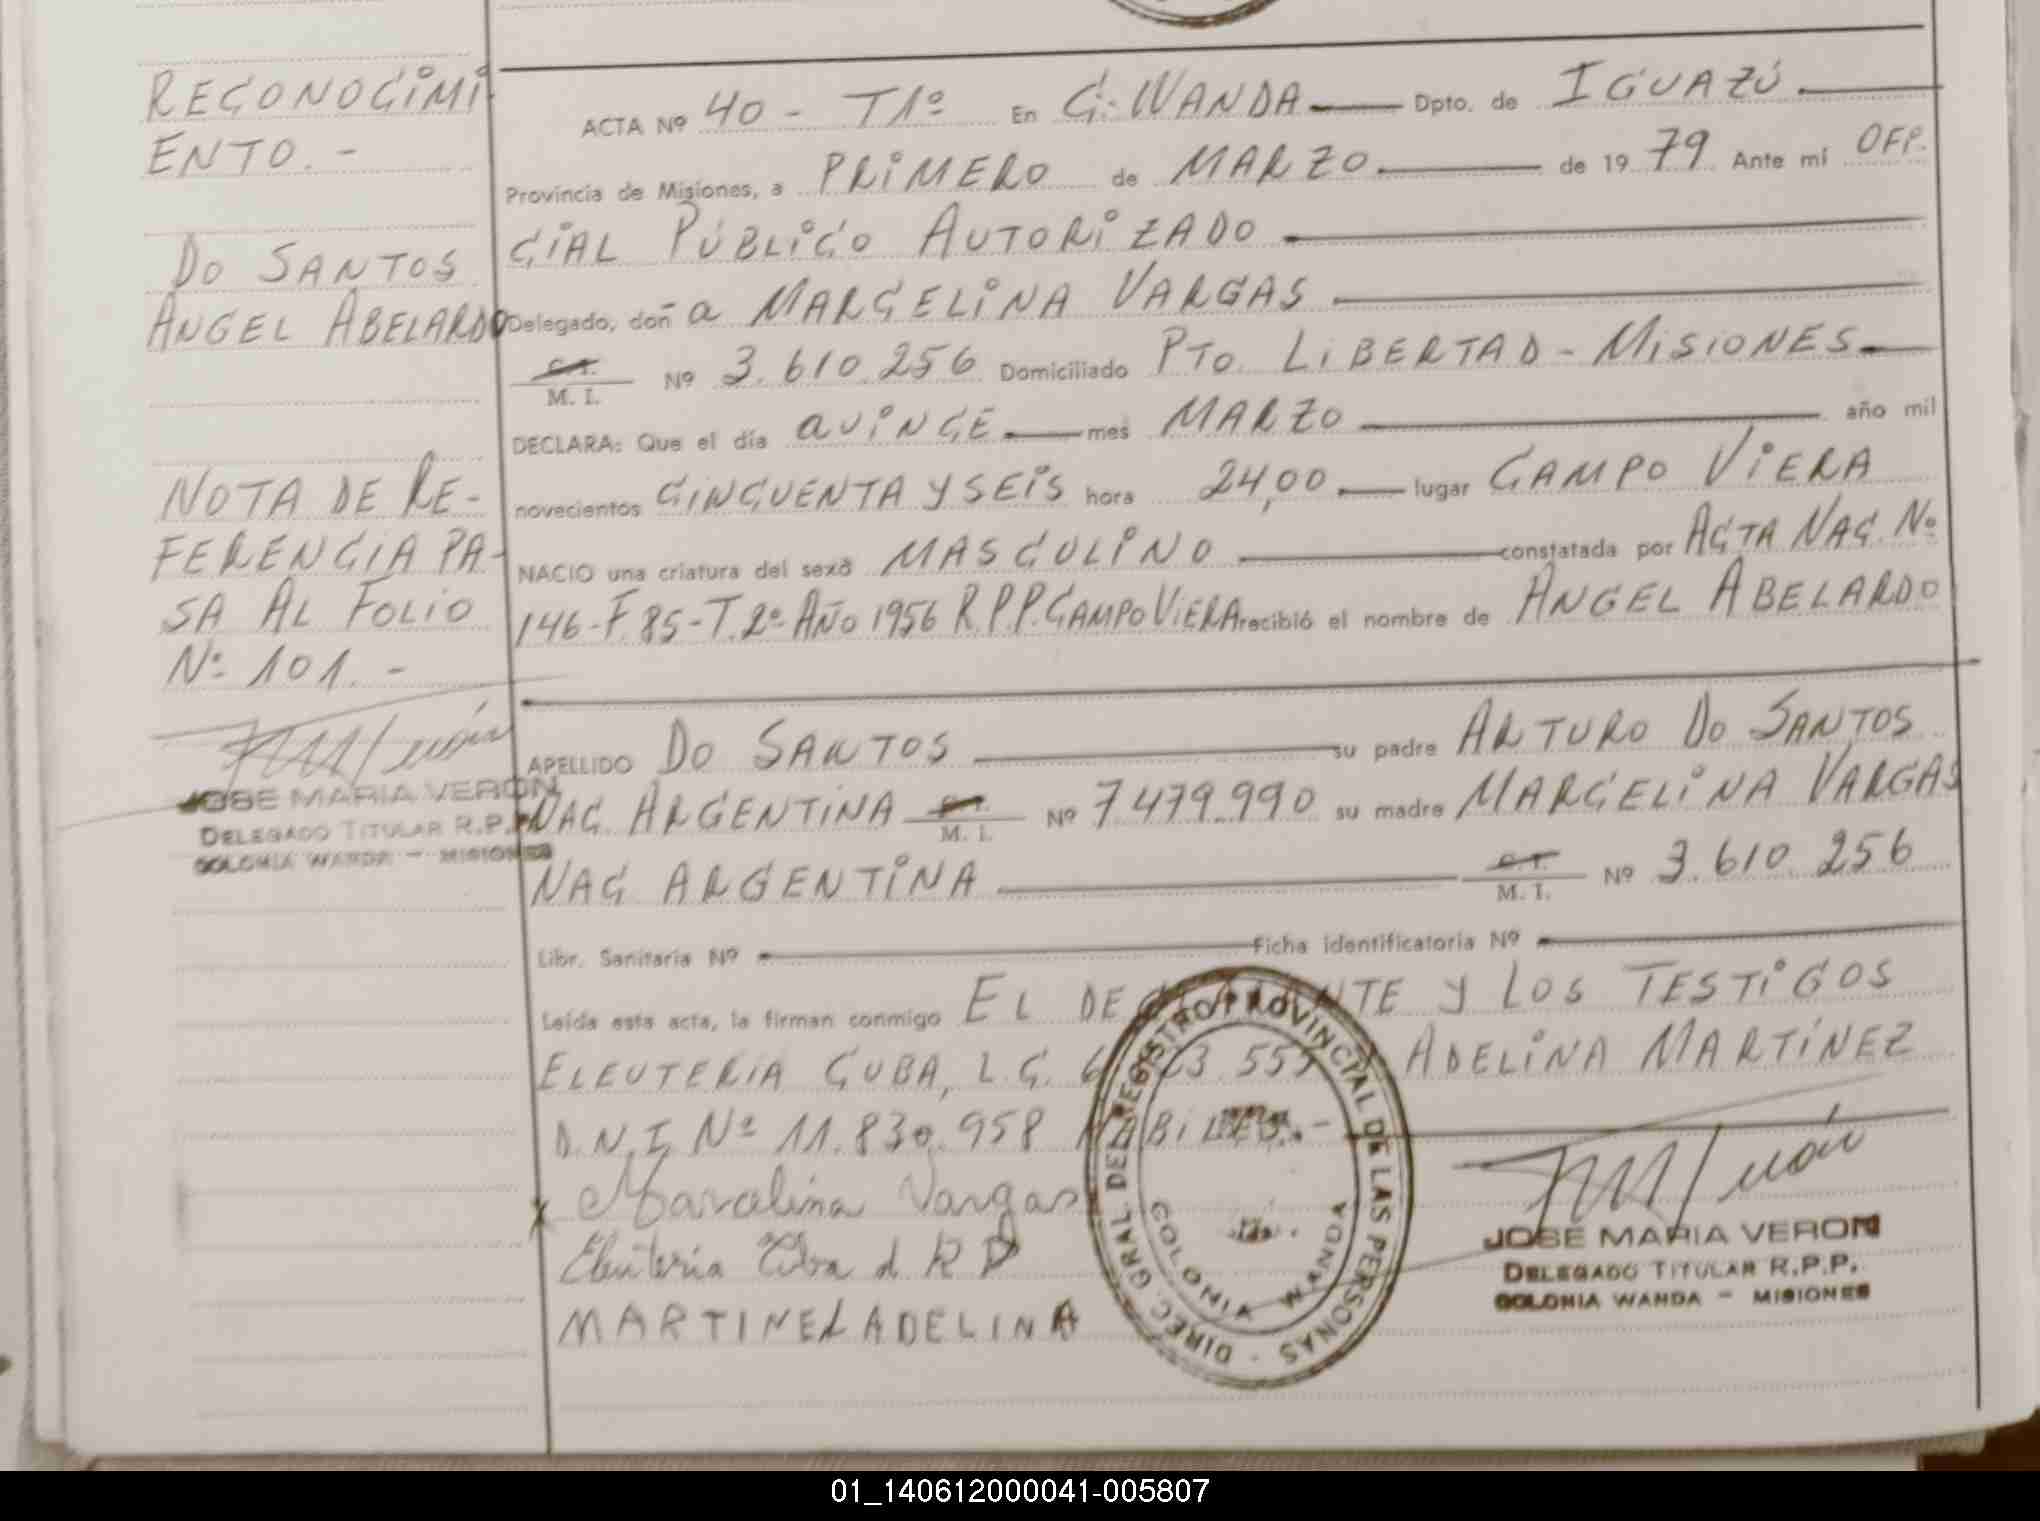 RECONOCIMI
ENTO.-
DO SANTOS
ANGEL ABELARDO
NOTA DE RE-
FERENCIA PA-
SA AL FOLIO
Nº 101.-
JOSE MARIA VERON
DELEGADO TITULAR R.P.P.
COLONIA WANDA - MISIONES
ACTA Nº 40 - T1º En C. WANDA Dpto. de IGUAZÚ
Provincia de Misiones, a PRIMERO de MARZO de 1979 Ante mí OFI-
CIAL PÚBLICO AUTORIZADO
Delegado, doña MARCELINA VARGAS
C. I.
M. I. Nº 3.610.256 Domiciliado PTO. LIBERTAD - MISIONES
DECLARA: Que el día QUINCE mes MARZO año mil
novecientos CINCUENTA Y SEIS hora 24,00 lugar CAMPO VIERA
NACIO una criatura del sexo MASCULINO constatada por ACTA NAC. Nº
146-F.85-T.2º AÑO 1956 R.P.P. CAMPO VIERA recibió el nombre de ANGEL ABELARDO
APELLIDO DO SANTOS su padre ARTURO DO SANTOS
NAC ARGENTINA C. I. M. I. Nº 7479.990 su madre MARCELINA VARGAS
NAC ARGENTINA C. I. M. I. Nº 3.610.256
Libr. Sanitaria Nº Ficha identificatoria Nº
Leída esta acta, la firman conmigo EL DECLARANTE Y LOS TESTIGOS
ELEUTERIA CUBA, L.C. 03.557 ADELINA MARTÍNEZ
D.N.I Nº 11.830.958 HABILES.-
x Marcelina Vargas
Eleuteria Cuba d R D
MARTINEZ ADELINA
DIREC. GRAL. DEL REGISTRO PROVINCIAL DE LAS PERSONAS
COLONIA WANDA
JOSE MARIA VERON
DELEGADO TITULAR R.P.P.
COLONIA WANDA - MISIONES
01_140612000041-005807